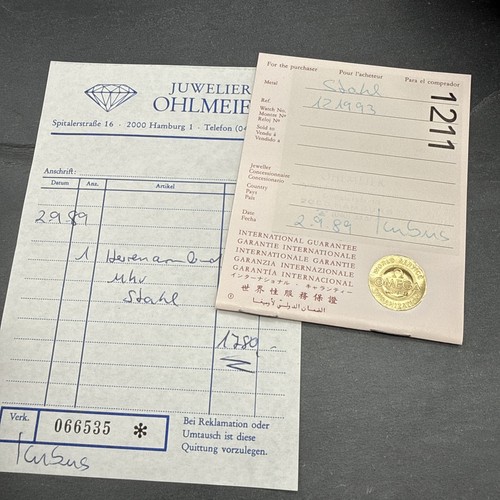 JUWELIER
OHLMEIE
Spitalerstraße 16 - 2000 Hamburg 1 - Telefon (04
Anschrift:
Datum Anz. Artikel
2.9.89
1 Herrenarmband
uhr
Stahl
1780,-
Verk.
066535 *
Bei Reklamation oder
Umtausch ist diese
Quittung vorzulegen.
For the purchaser Pour l'acheteur Para el comprador
Metal Stahl
Ref. 121993
Watch No.
Montre No
Reloj No
Sold to
Vendu à
Vendido a
Jeweller
Concessionnaire
Concesionario
Country
Pays
País
Date
Fecha 2.9.89
1211
INTERNATIONAL GUARANTEE
GARANTIE INTERNATIONALE
INTERNATIONALE GARANTIE
GARANZIA INTERNAZIONALE
GARANTÍA INTERNACIONAL
インターナショナル・ギャランティー
世界性服務保證
الضمان الدولي لأوميغا